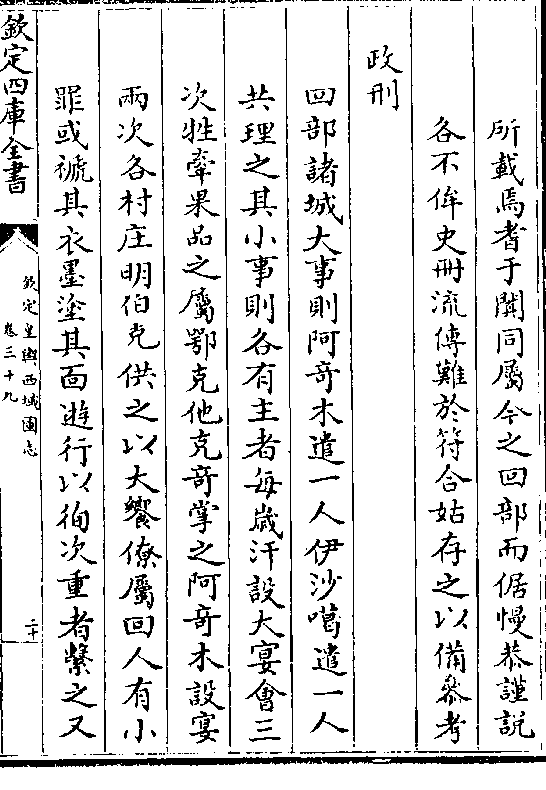 所載焉耆于闐同屬今之回部而倨慢恭謹説
各不侔史册流傳難於符合姑存之以備叅考
政刑
回部諸城大事則阿奇木遣一人伊沙噶遣一人
共理之其小事則各有主者每歲汗設大宴會三
次牲牽果品之屬鄂克他克奇掌之阿奇木設宴
兩次各村庄明伯克供之以大饗僚屬回人有小
罪或褫其衣墨塗其面遊行以徇次重者繫之又
欽定四庫全書
欽定皇輿西域圖志
卷三十九
二十